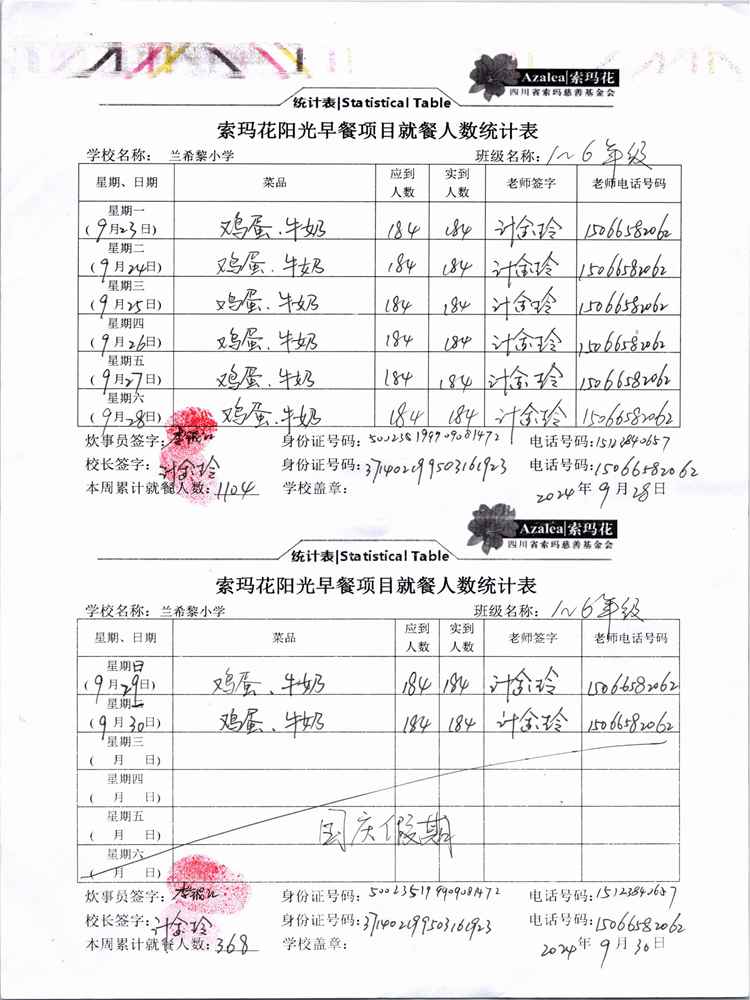 Azalea|索玛花
四川省索玛慈善基金会
统计表|Statistical Table
索玛花阳光早餐项目就餐人数统计表
学校名称： 兰希黎小学 班级名称：1~6年级
星期、日期 菜品 应到人数 实到人数 老师签字 老师电话号码
星期一 (9月23日) 鸡蛋、牛奶 184 184 计金玲 15066582062
星期二 (9月24日) 鸡蛋、牛奶 184 184 计金玲 15066582062
星期三 (9月25日) 鸡蛋、牛奶 184 184 计金玲 15066582062
星期四 (9月26日) 鸡蛋、牛奶 184 184 计金玲 15066582062
星期五 (9月27日) 鸡蛋、牛奶 184 184 计金玲 15066582062
星期六 (9月28日) 鸡蛋、牛奶 184 184 计金玲 15066582062
炊事员签字： 身份证号码： 电话号码：
校长签字：计金玲 身份证号码：371402199503161923 电话号码：15066582062
本周累计就餐人数：1104 学校盖章： 2024年9月28日
Azalea|索玛花
四川省索玛慈善基金会
统计表|Statistical Table
索玛花阳光早餐项目就餐人数统计表
学校名称： 兰希黎小学 班级名称：1~6年级
星期、日期 菜品 应到人数 实到人数 老师签字 老师电话号码
星期日 (9月29日) 鸡蛋、牛奶 184 184 计金玲 15066582062
星期一 (9月30日) 鸡蛋、牛奶 184 184 计金玲 15066582062
星期三 ( 月 日)
星期四 ( 月 日)
星期五 ( 月 日) 国庆假期
星期六 ( 月 日)
炊事员签字： 身份证号码： 电话号码：
校长签字：计金玲 身份证号码：371402199503161923 电话号码：15066582062
本周累计就餐人数：368 学校盖章： 2024年9月30日